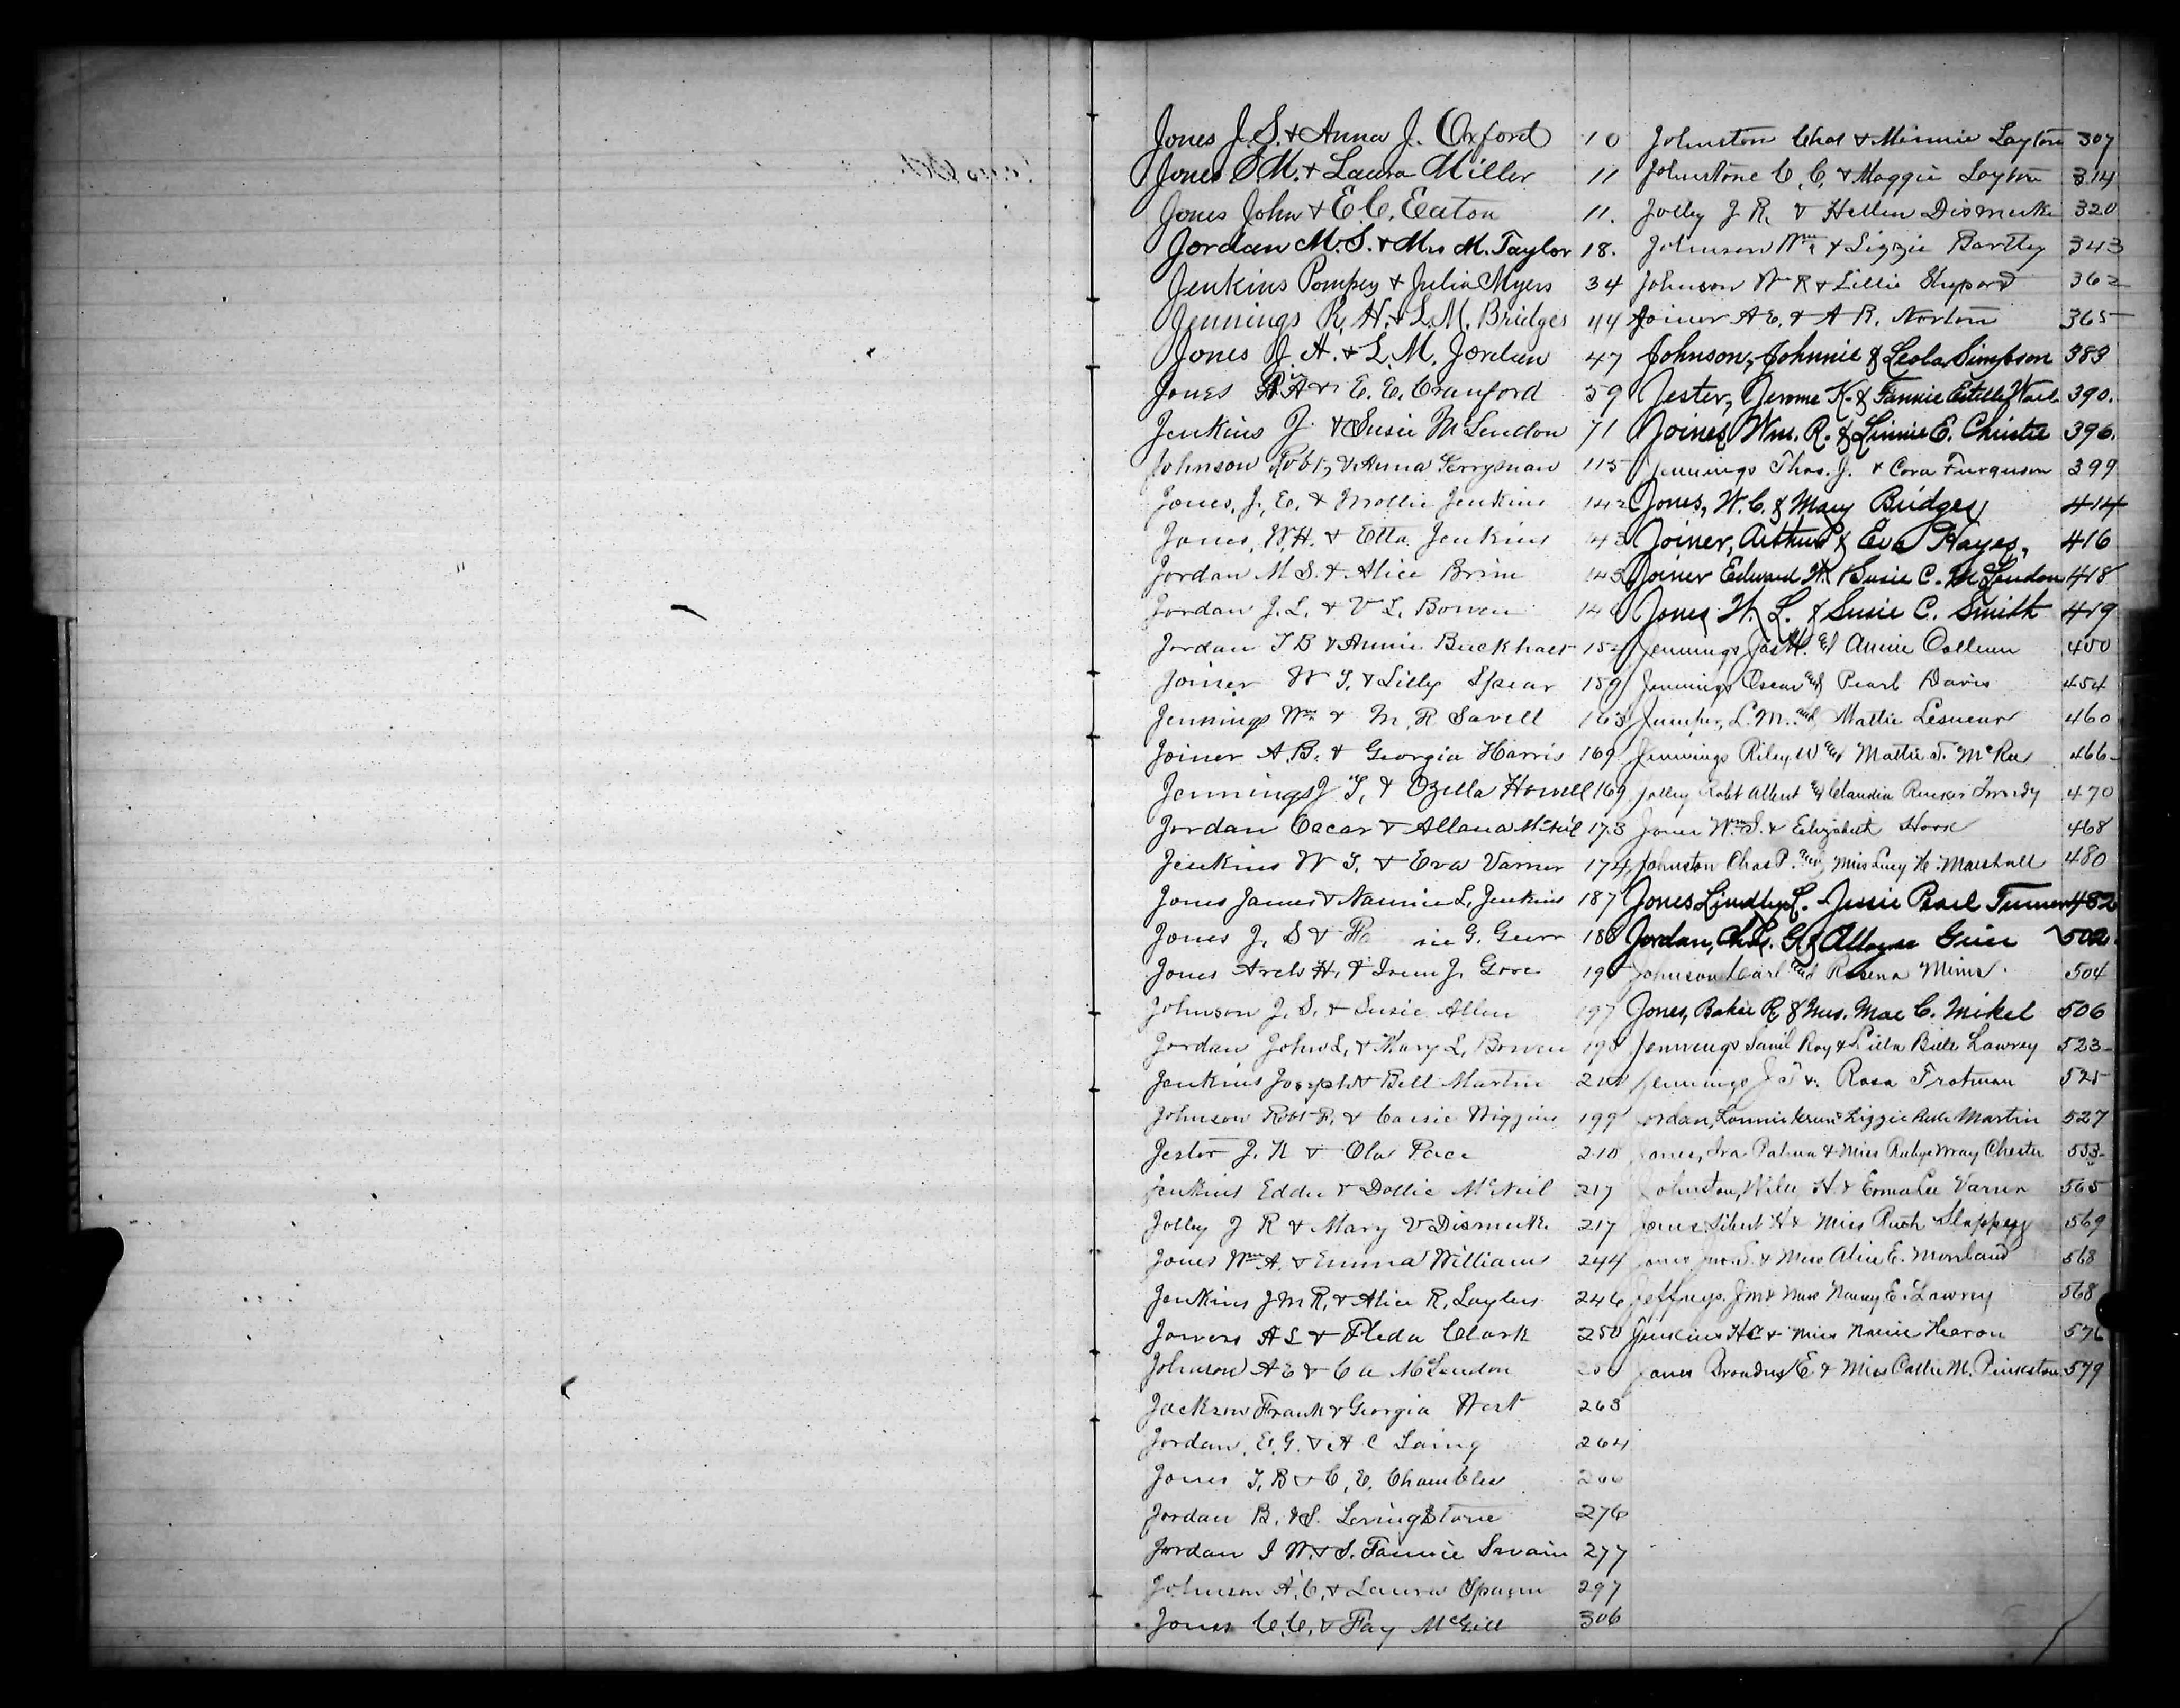 Jones J. S. & Anna J. Oxford 10
Jones E M. & Laura Miller 11
Jones John & E. C. Eaton 11.
Jordan M. S. & Mrs M. Taylor 18.
Jenkins Pompey & Julia Myers 34
Jennings R. H. & L. M. Bridges 44
Jones J. A. & L. M. Jordan 47
Jones & E. E. Cranford 59
Jenkins J. & Susie McLendon 71
Johnson Robt, & Anna Perryman 115
Jones, J. E. & Mollie Jenkins 142
Jones, W. H. & Etta Jenkins 143
Jordan M S. & Alice Brim 143
Jordan J. L. & V L. Bowen
Jordan T B & Annie Buckhalt
Joiner W T. & Lilly Spear 159
Jennings Wm & M. R Savell 163
Joiner A. B. & Georgia Harris 169
Jennings J T, & Ozella Howell 169
Jordan Oscar & 173
Jenkins W T. & Eva Varner 174
Jones James & Nannie L. Jenkins 187
Jones J. S & G. Geer 188
Jones Arch H. & J. Gore
Johnson J. S. & Susie Allen 197
Jordan John L, & Mary L, Bowen
Jenkins Joseph & Bell Martin
Johnson Robt R. & Wiggins 199
Jester J. K & Ola Pace 210
Jenkins Eddie & Dollie McNeil 217
Jolley J R & Mary V Dismuke 217
Jones Wm A. & Emma Williams 244
Jenkins J M R. & Alice R. 246
Jowers A L & Fleda Clark 250
Johnson A E & C A McLendon
Jackson Frank & Georgia West 263
Jordan, E. G. & A C Laing 264
Jones T. B & C. E. Chambless
Jordan B. & S. Levingstone 276
Jordan J W. & S. Fannie Swain 277
Johnson A. C. & Laura 297
Jones C. C. & Fay McGill 306
Johnston Chas & Minnie Layton 307
Johnstone C. C. & Maggie Layton 314
Jolley J R. & Hellen Dismuke 320
Johnson Wm & Lizzie Bartley 343
Johnson Wm R & Lillie Shepard 362
Joiner A E. & A R. Norton 365
Johnson, Johnnie & Leola Simpson 383
Jester, Jerome K. & Fannie Estelle 390.
Joines Wm. R. & Linnie E. Christie 396.
Jennings Thos. J. & Cora Furguson 399
Jones, W. C. & Mary Bridges 414
Joiner, Arthur P & Eva Hayes, 416
Joiner Edward W. & Susie C. McLendon 418
Jones W. L. & Susie C. Smith 419
Jennings Jas H. and Annie Collum 450
Jennings Oscar and Pearl Davis 454
Jumper, L. M. and Mattie Lesueur 460
Jennings Riley W and Mattie J. McRae 466
Jolley Robt Albert and Claudia 470
Jones Wm S. & Elizabeth Hood 468
Johnston Chas P. and Miss Lucy H. Marshall 480
Jones Lindley L. Jessie Pearl Turner 482
Jordan, G & Grier 502
Johnson Carl and Rosena Mims. 504
Jones, R & Mrs. Mae C. Mikel 506
Jennings Saml Roy & Belle Lawrey 523
Jennings J T & Rosa Trotman 525
Jordan, Lonnie & Lizzie Belle Martin 527
Jones, Ira & Miss Rubye Wray Chester 553
Johnston, H & Erma Lee Varner 565
Jones H & Miss Ruth Slappey 569
Jones & Miss Alice E. Moreland 568
Jeffreys J M & Miss Nancy E. Lawrey 568
Jenkins H C & Miss Hearon 576
Jones Broadus E & Miss Callie M. Pinkston 579